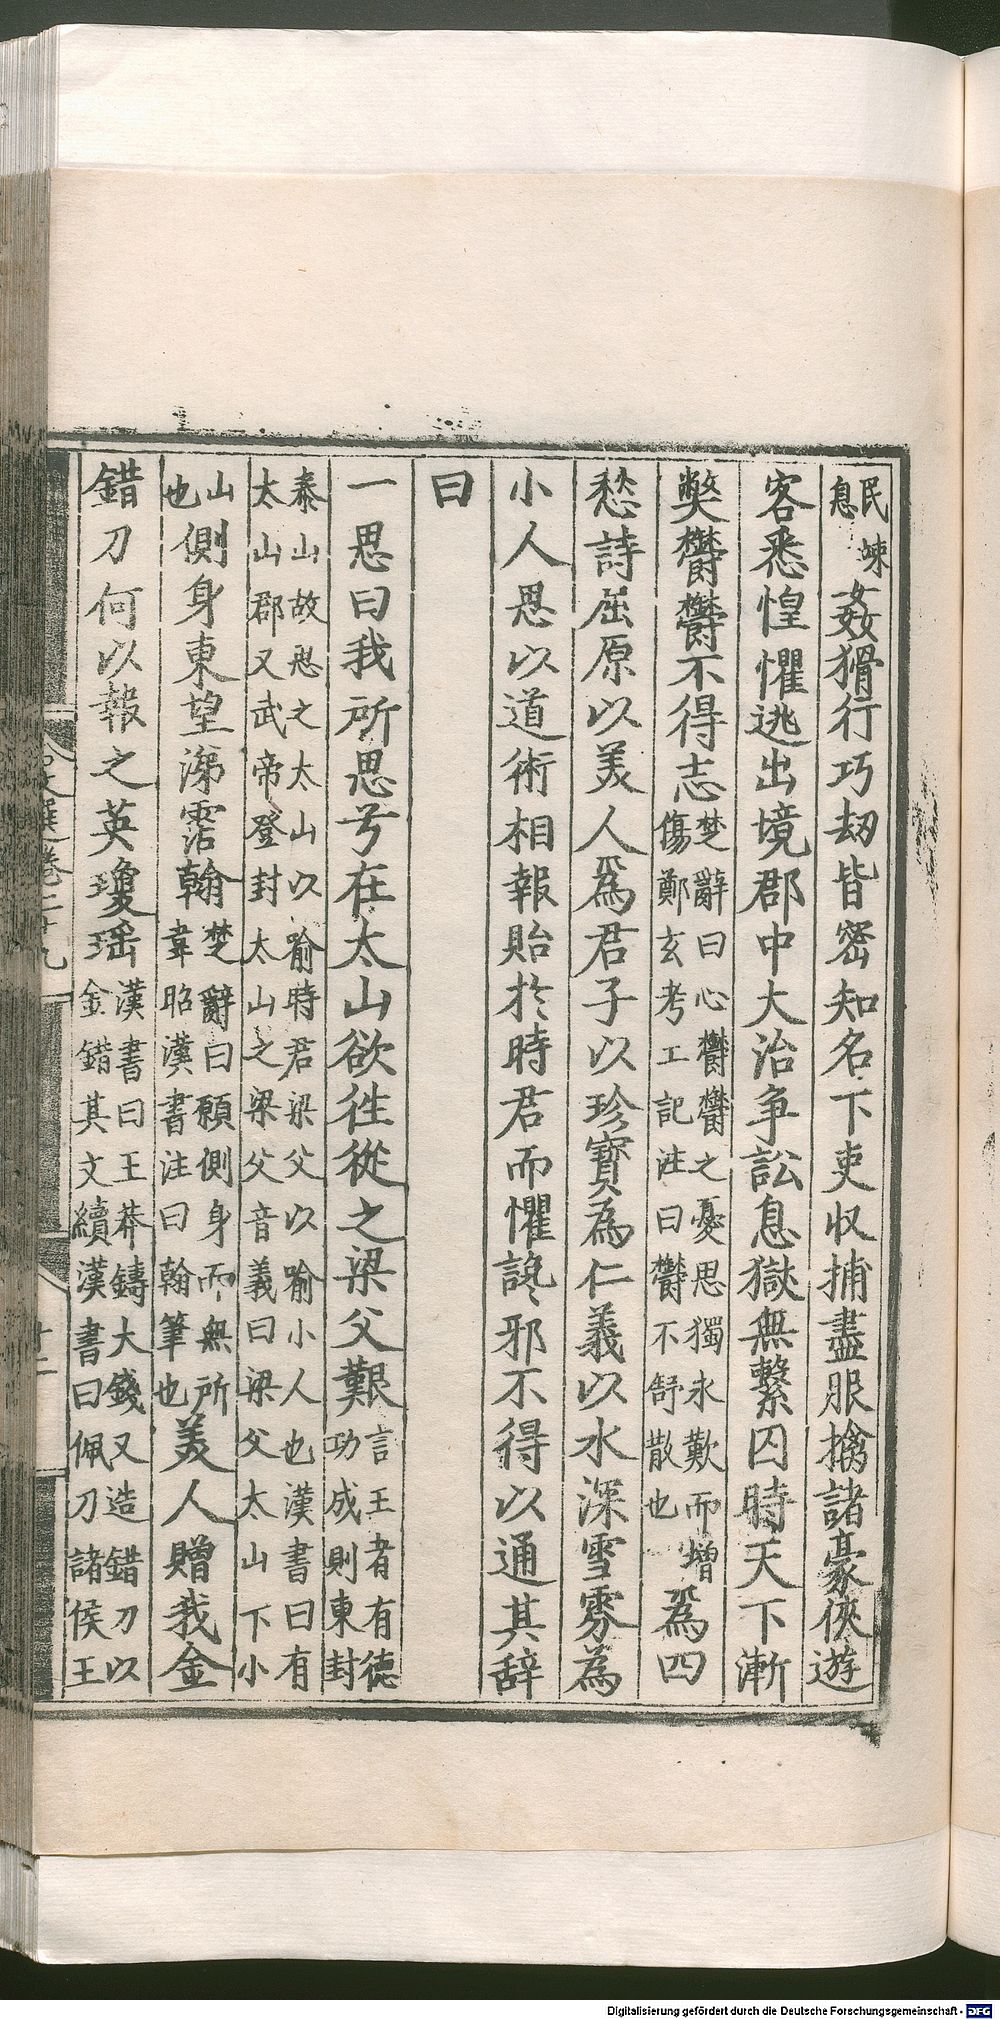 民竦息姦猾行巧劫皆密知名下吏収捕盡服擒諸豪俠遊
客悉惶懼逃出境郡中大治爭訟息獄無繫囚時天下漸
弊鬱鬱不得志楚辭曰心鬱鬱之憂思獨永歎而增傷鄭玄考工記注曰鬱不舒散也爲四
愁詩屈原以美人爲君子以珍寶為仁義以水深雪雰為
小人思以道術相報貽於時君而懼讒邪不得以通其辞
曰
一思曰我所思兮在太山欲徃從之梁父艱言王者有德功成則東封
泰山故思之太山以喻時君梁父以喻小人也漢書曰有太山郡又武帝登封太山之梁父音義曰梁父太山下小
山也側身東望涕霑翰楚辭曰願側身而無所韋昭漢書注曰翰筆也美人贈我金
錯刀何以報之英瓊瑶漢書曰王莽鑄大錢又造錯刀以金錯其文續漢書曰佩刀諸侯王
文選卷二十九
廿二
Digitalisierung gefördert durch die Deutsche Forschungsgemeinschaft - DFG